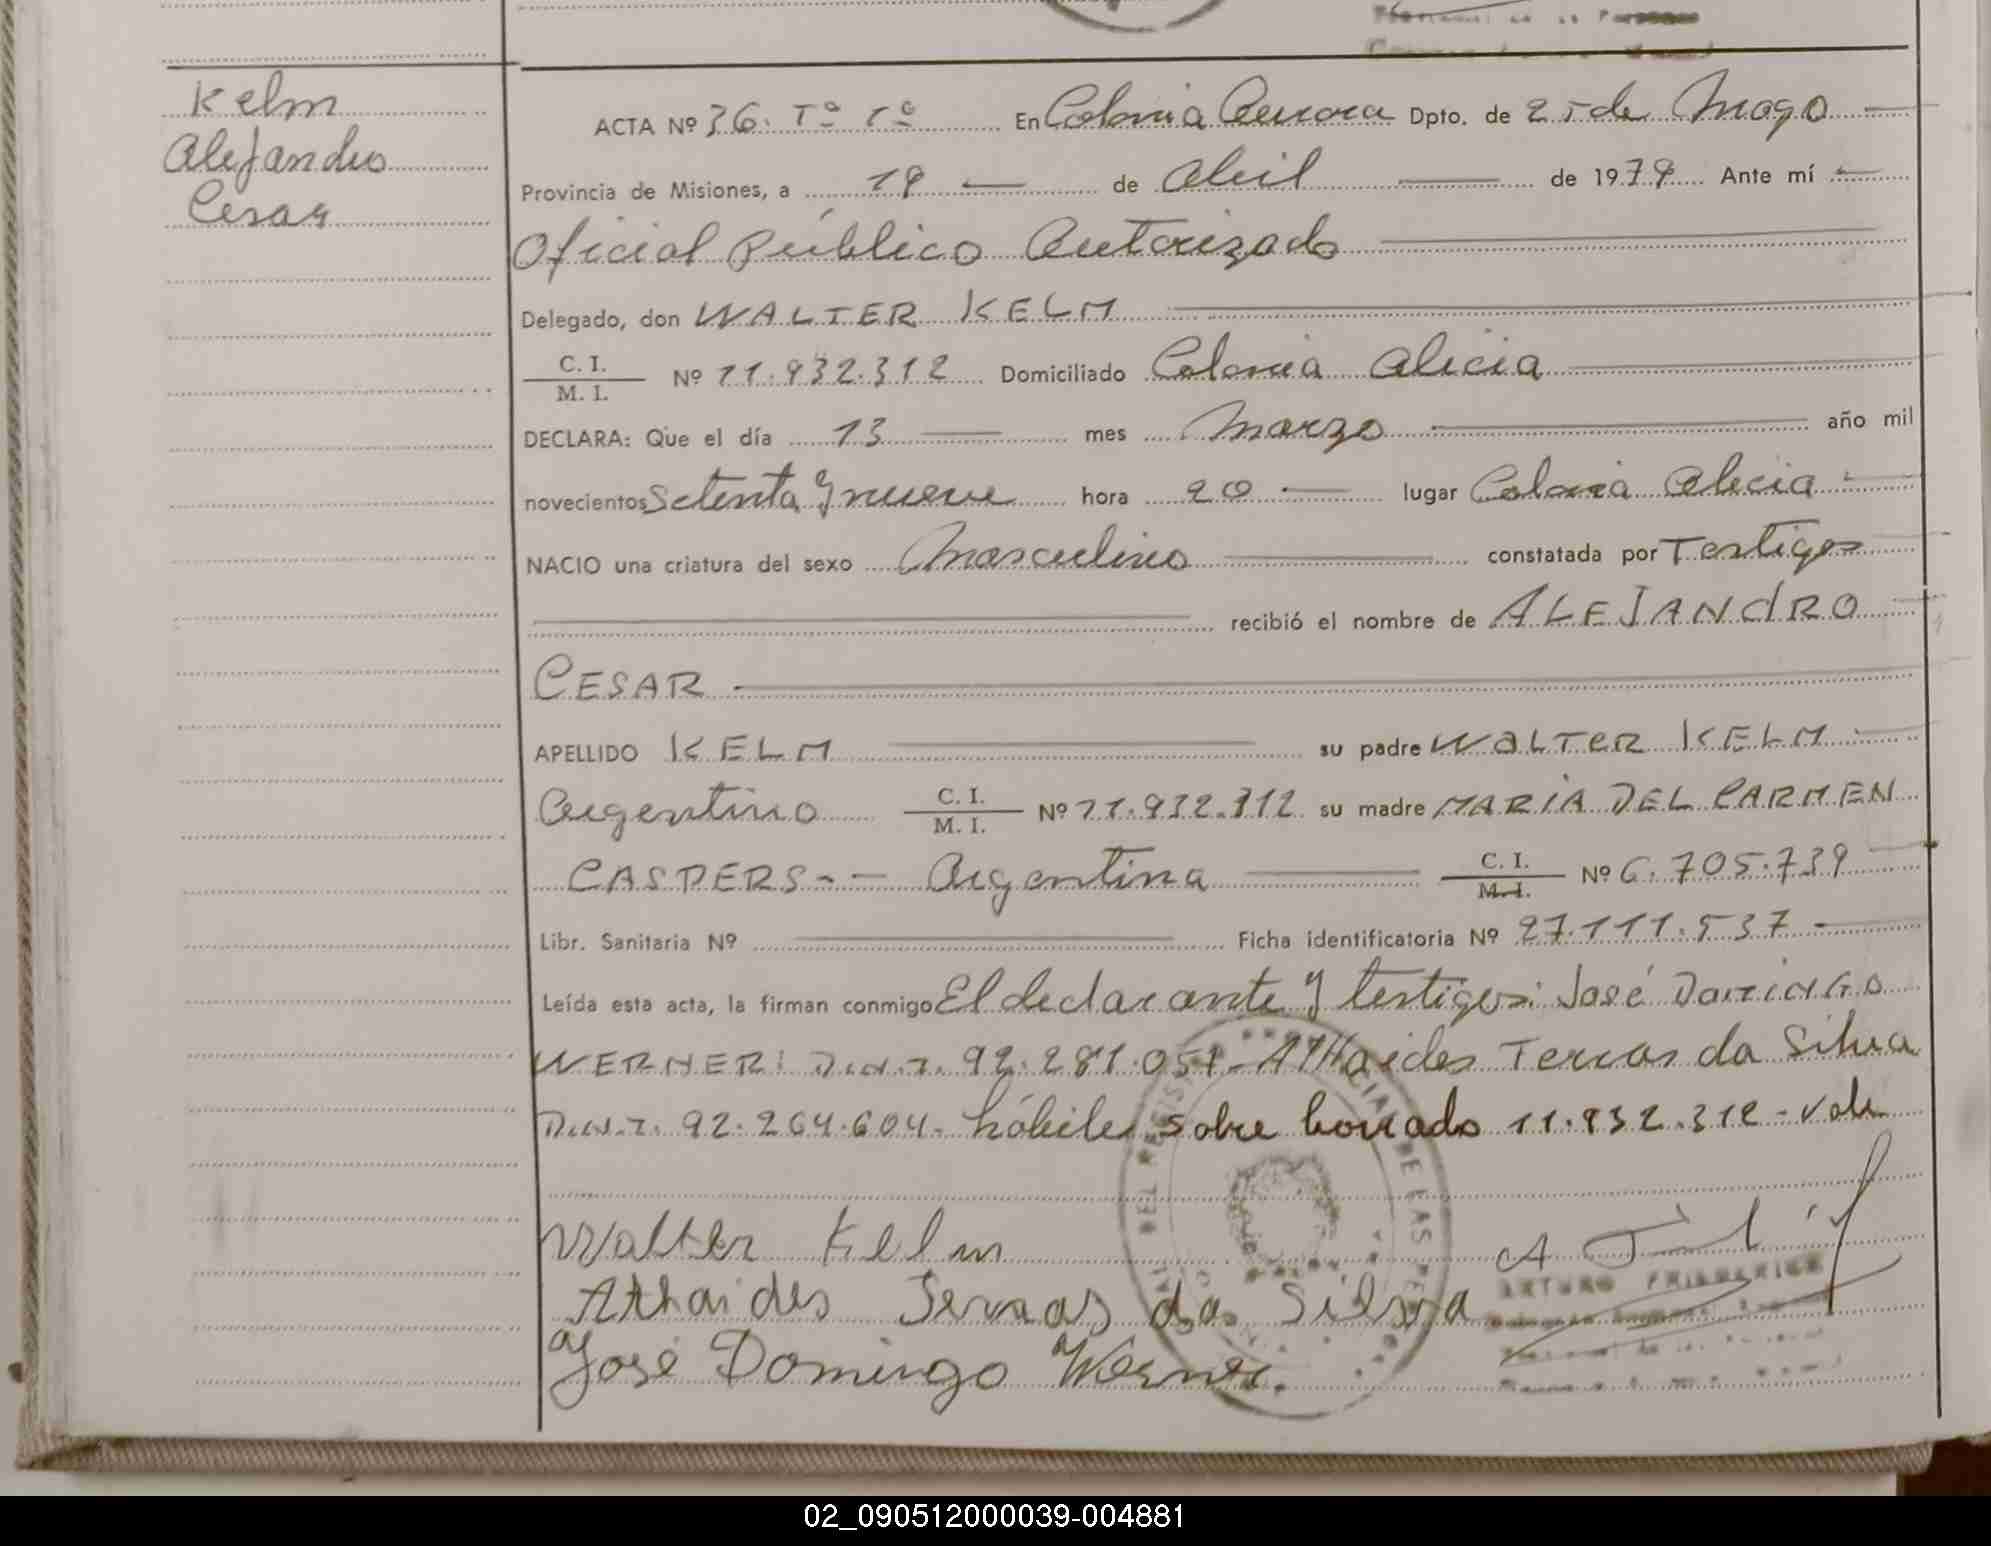 Kelm
Alejandro
Cesar
ACTA Nº 36. Tº 1º En Colonia Aurora Dpto. de 25 de Mayo
Provincia de Misiones, a 19 de Abril de 1979. Ante mí
Oficial Público Autorizado
Delegado, don WALTER KELM
C. I.
M. I. Nº 11.932.312 Domiciliado Colonia Alicia
DECLARA: Que el día 13 mes Marzo año mil
novecientos Setenta y nueve hora 20 lugar Colonia Alicia
NACIO una criatura del sexo Masculino constatada por Testigos
recibió el nombre de ALEJANDRO
CESAR
APELLIDO KELM su padre WALTER KELM
Argentino C. I.
M. I. Nº 11.932.312 su madre MARIA DEL CARMEN
CASPERS -- Argentina C. I.
M. I. Nº 6.705.739
Libr. Sanitaria Nº Ficha identificatoria Nº 27.111.537
Leída esta acta, la firman conmigo El declarante y testigos: José Domingo
WERNER: D.N.I. 92.281.051 - Athaides Terras da Silva
D.N.I. 92.264.604. hábiles sobre borrado 11.932.312 - Vale
Walter Kelm
Athaides da Silva
José Domingo Werner.
ARTURO
02_090512000039-004881